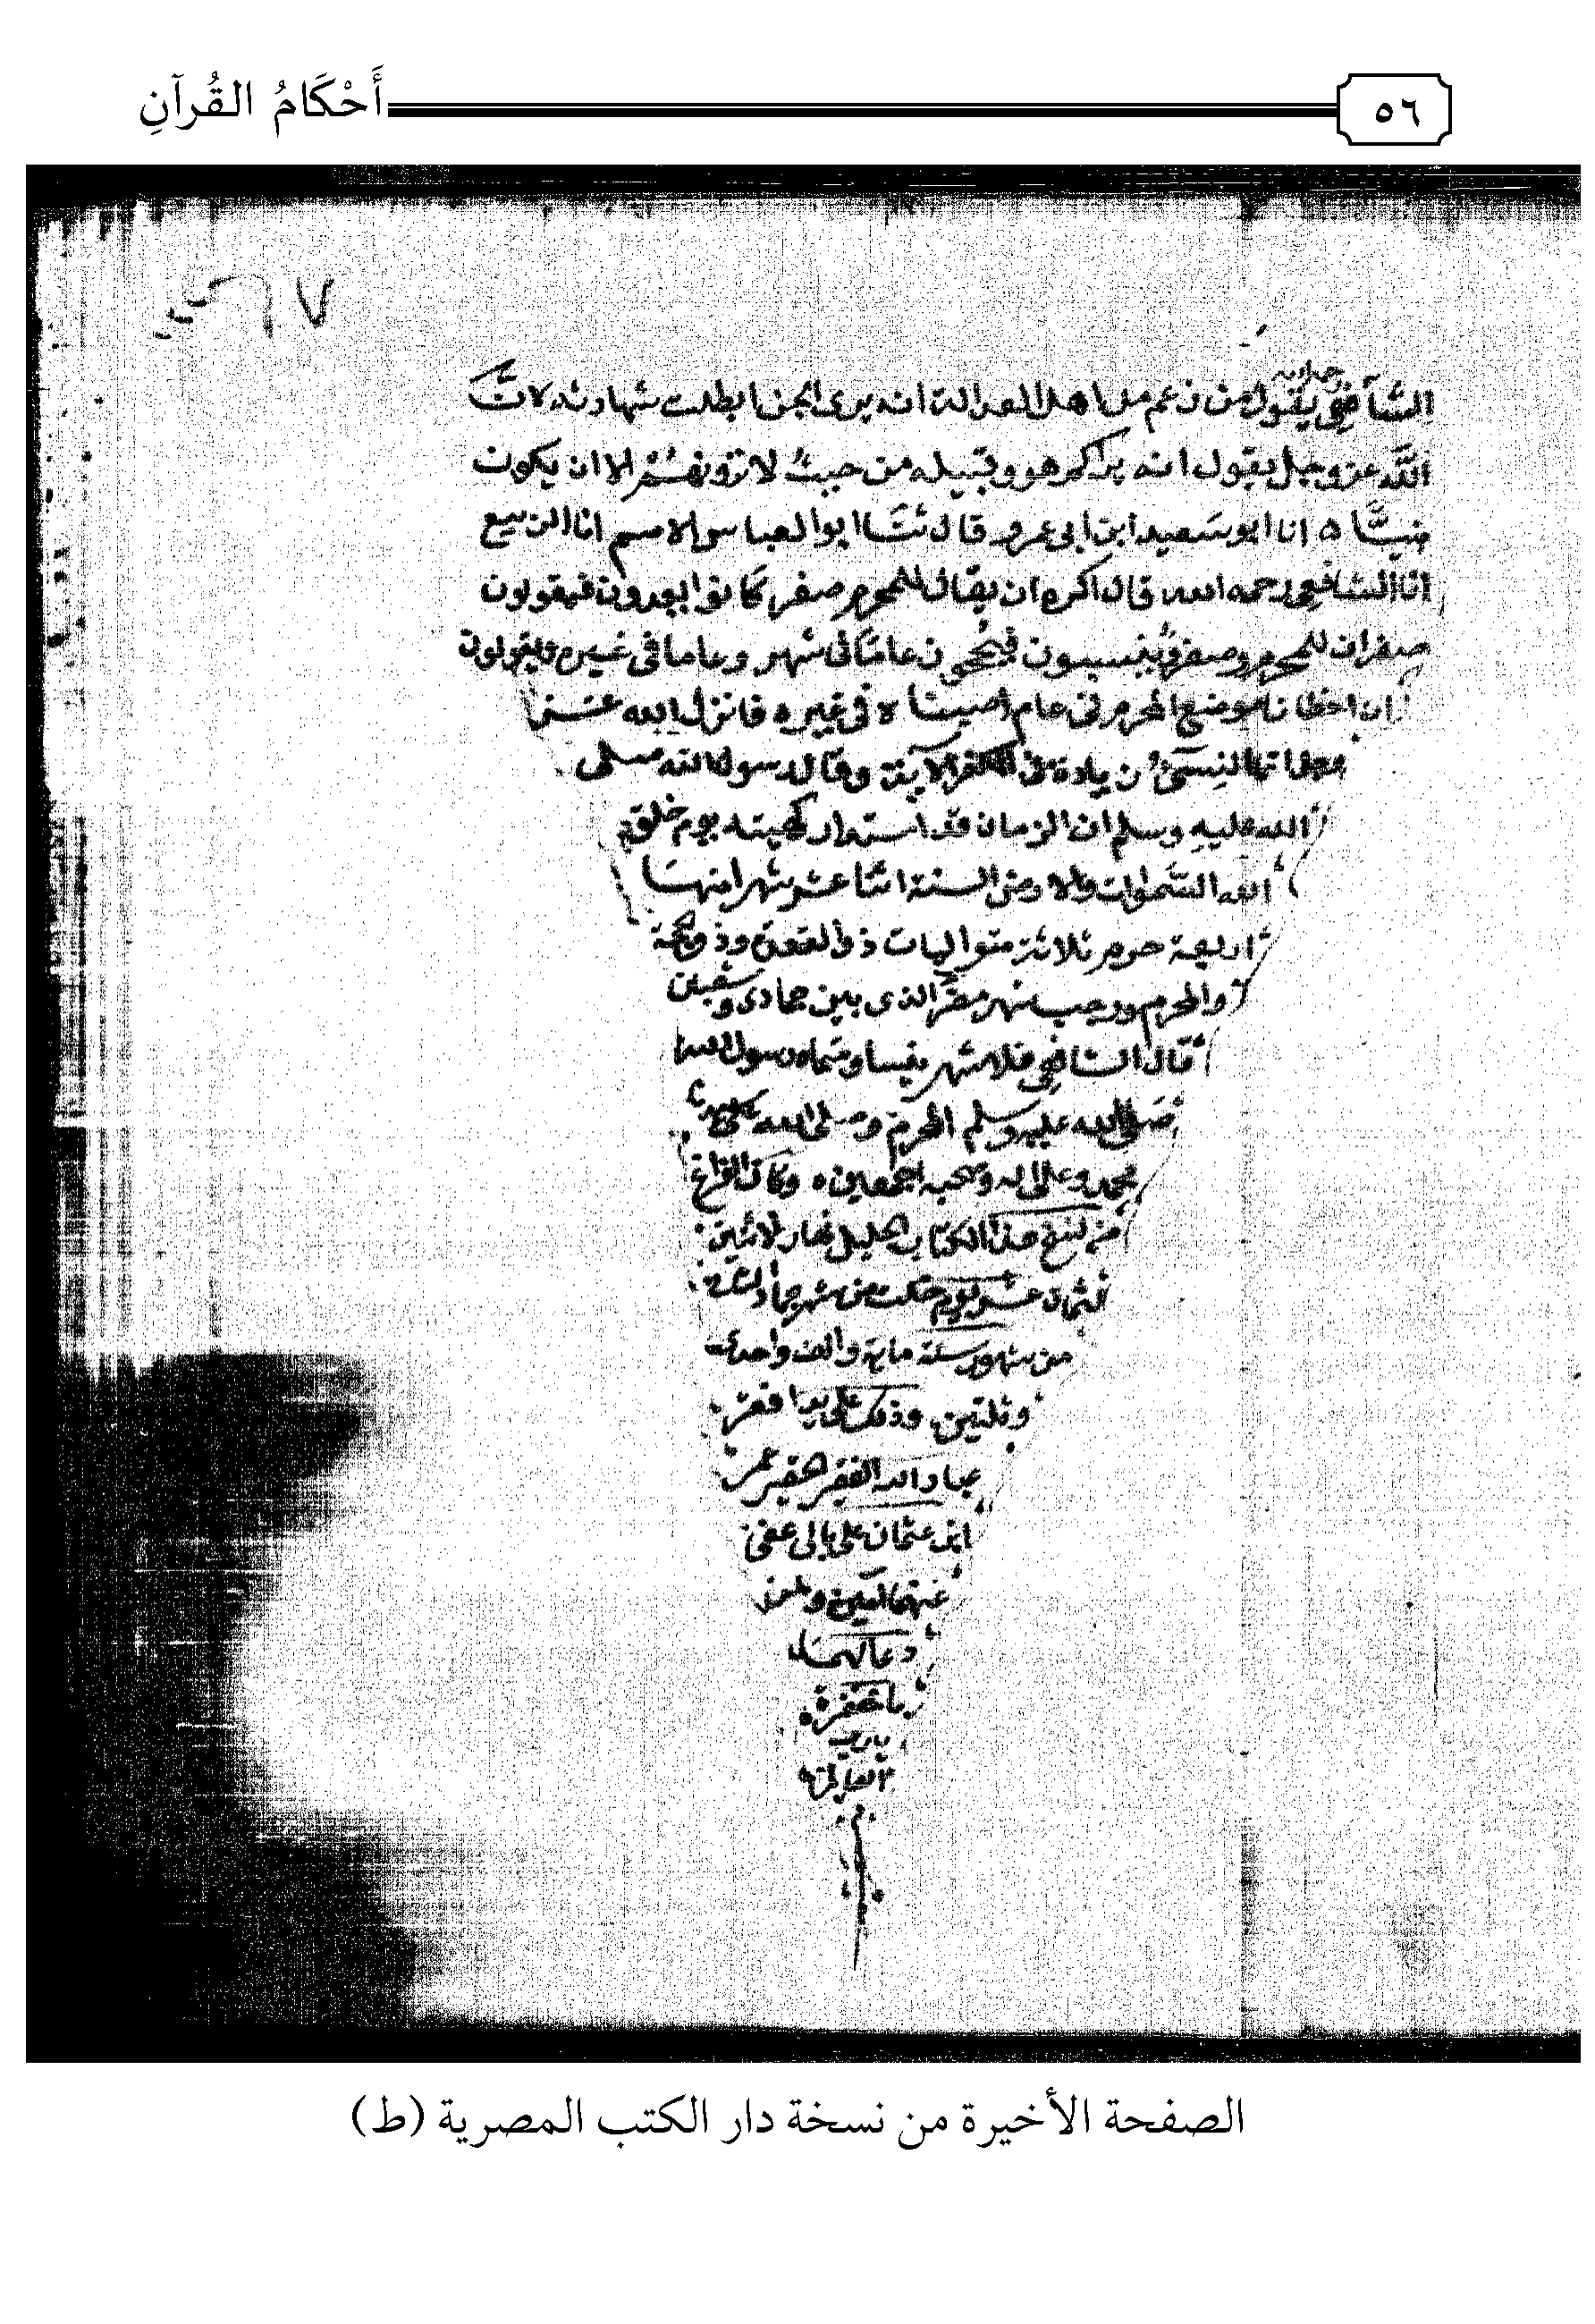 ٥٦
أَحْكَامُ القُرآنِ
الشافعي يقول من زعم من اهل العدالة انه يرى الجن ابطلت شهادته لان
الله عز وجل يقول انه يراكم هو وقبيله من حيث لا ترونهم الا ان يكون
نبيا ٥ انا ابو سعيد ابن ابي عمرو قال ثنا ابو العباس الاصم انا الربيع
انا الشافعي رحمه الله قال اكره ان يقال للمحرم صفر كانوا يعدون فيقولون
صفران للمحرم وصفر وينسيون فيحجون عاما في شهر وعاما في غيره ويقولون
ان اخطانا موضع المحرم في عام اصبناه في غيره فانزل الله عز
وجل انما النسئ زيادة في الكفر الاية وقال رسول الله صلى
الله عليه وسلم ان الزمان قد استدار كهيئته يوم خلق
الله السموات والارض السنة اثنا عشر شهرا منها
اربعة حرم ثلاثة متواليات ذو القعدة وذو الحجة
والمحرم ورجب شهر مضر الذي بين جمادى وشعبن
قال الشافعي فلا شهر ينسا وسماه رسول الله
صلى الله عليه وسلم المحرم وصلى الله على
محمد وعلى اله وصحبه اجمعين ٥ وكان الفراغ
من نسخ هذا الكتاب الجليل نهار الاثنين
لثمان عشر يوم خلت من شهر جماد
من شهور سنة ماية والف واحدى
وثلثين وذلك على يد افقر
عباد الله الفقير الحقير عمر
ابن عثمان عفى
عنهما امين ولمن
دعا لهما
بالمغفرة
يا رب
العالمين
الصفحة الأخيرة من نسخة دار الكتب المصرية (ط)